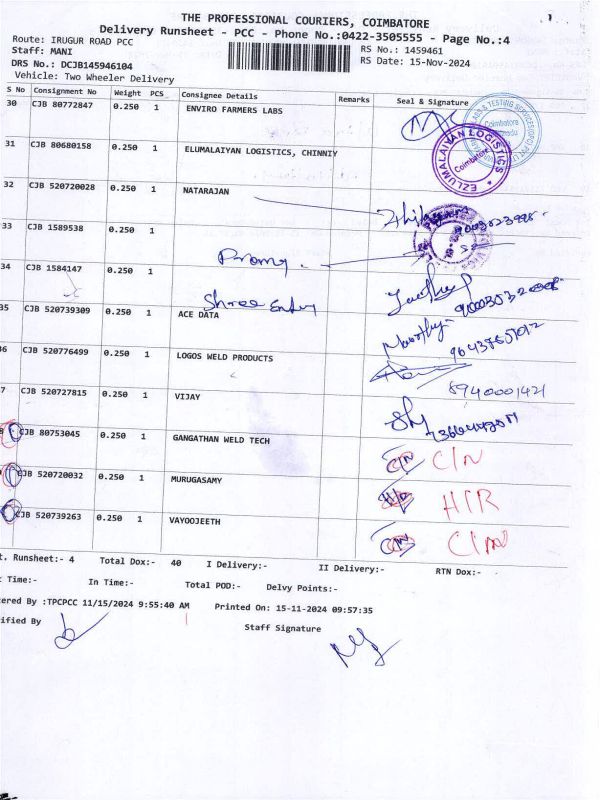 THE PROFESSIONAL COURIERS, COIMBATORE
Delivery Runsheet - PCC - Phone No.:0422-3505555 - Page No.:4
Route: IRUGUR ROAD PCC
Staff: MANI
RS No.: 1459461
DRS No.: DCJB145946104
RS Date: 15-Nov-2024
Vehicle: Two Wheeler Delivery
S No Consignment No Weight PCS Consignee Details Remarks Seal & Signature
30 CJB 80772847 0.250 1 ENVIRO FARMERS LABS
31 CJB 80680158 0.250 1 ELUMALAIYAN LOGISTICS, CHINNIY
EZLUMALAIYAN LOGISTICS
Coimbatore
32 CJB 520720028 0.250 1 NATARAJAN
33 CJB 1589538 0.250 1
34 CJB 1584147 0.250 1
Shree Entry
35 CJB 520739309 0.250 1 ACE DATA
6 CJB 520776499 0.250 1 LOGOS WELD PRODUCTS
8940001421
7 CJB 520727815 0.250 1 VIJAY
CJB 80753045 0.250 1 GANGATHAN WELD TECH
C/N
CJB 520720032 0.250 1 MURUGASAMY
CJB 520739263 0.250 1 VAYOOJEETH
t. Runsheet:- 4 Total Dox:- 40 I Delivery:- II Delivery:- RTN Dox:-
t Time:- In Time:- Total POD:- Delvy Points:-
tered By :TPCPCC 11/15/2024 9:55:40 AM Printed On: 15-11-2024 09:57:35
ified By
Staff Signature